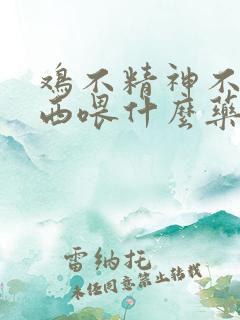 鸡不精神不
西喂什麽药
雷纳托
未经同意禁止转载